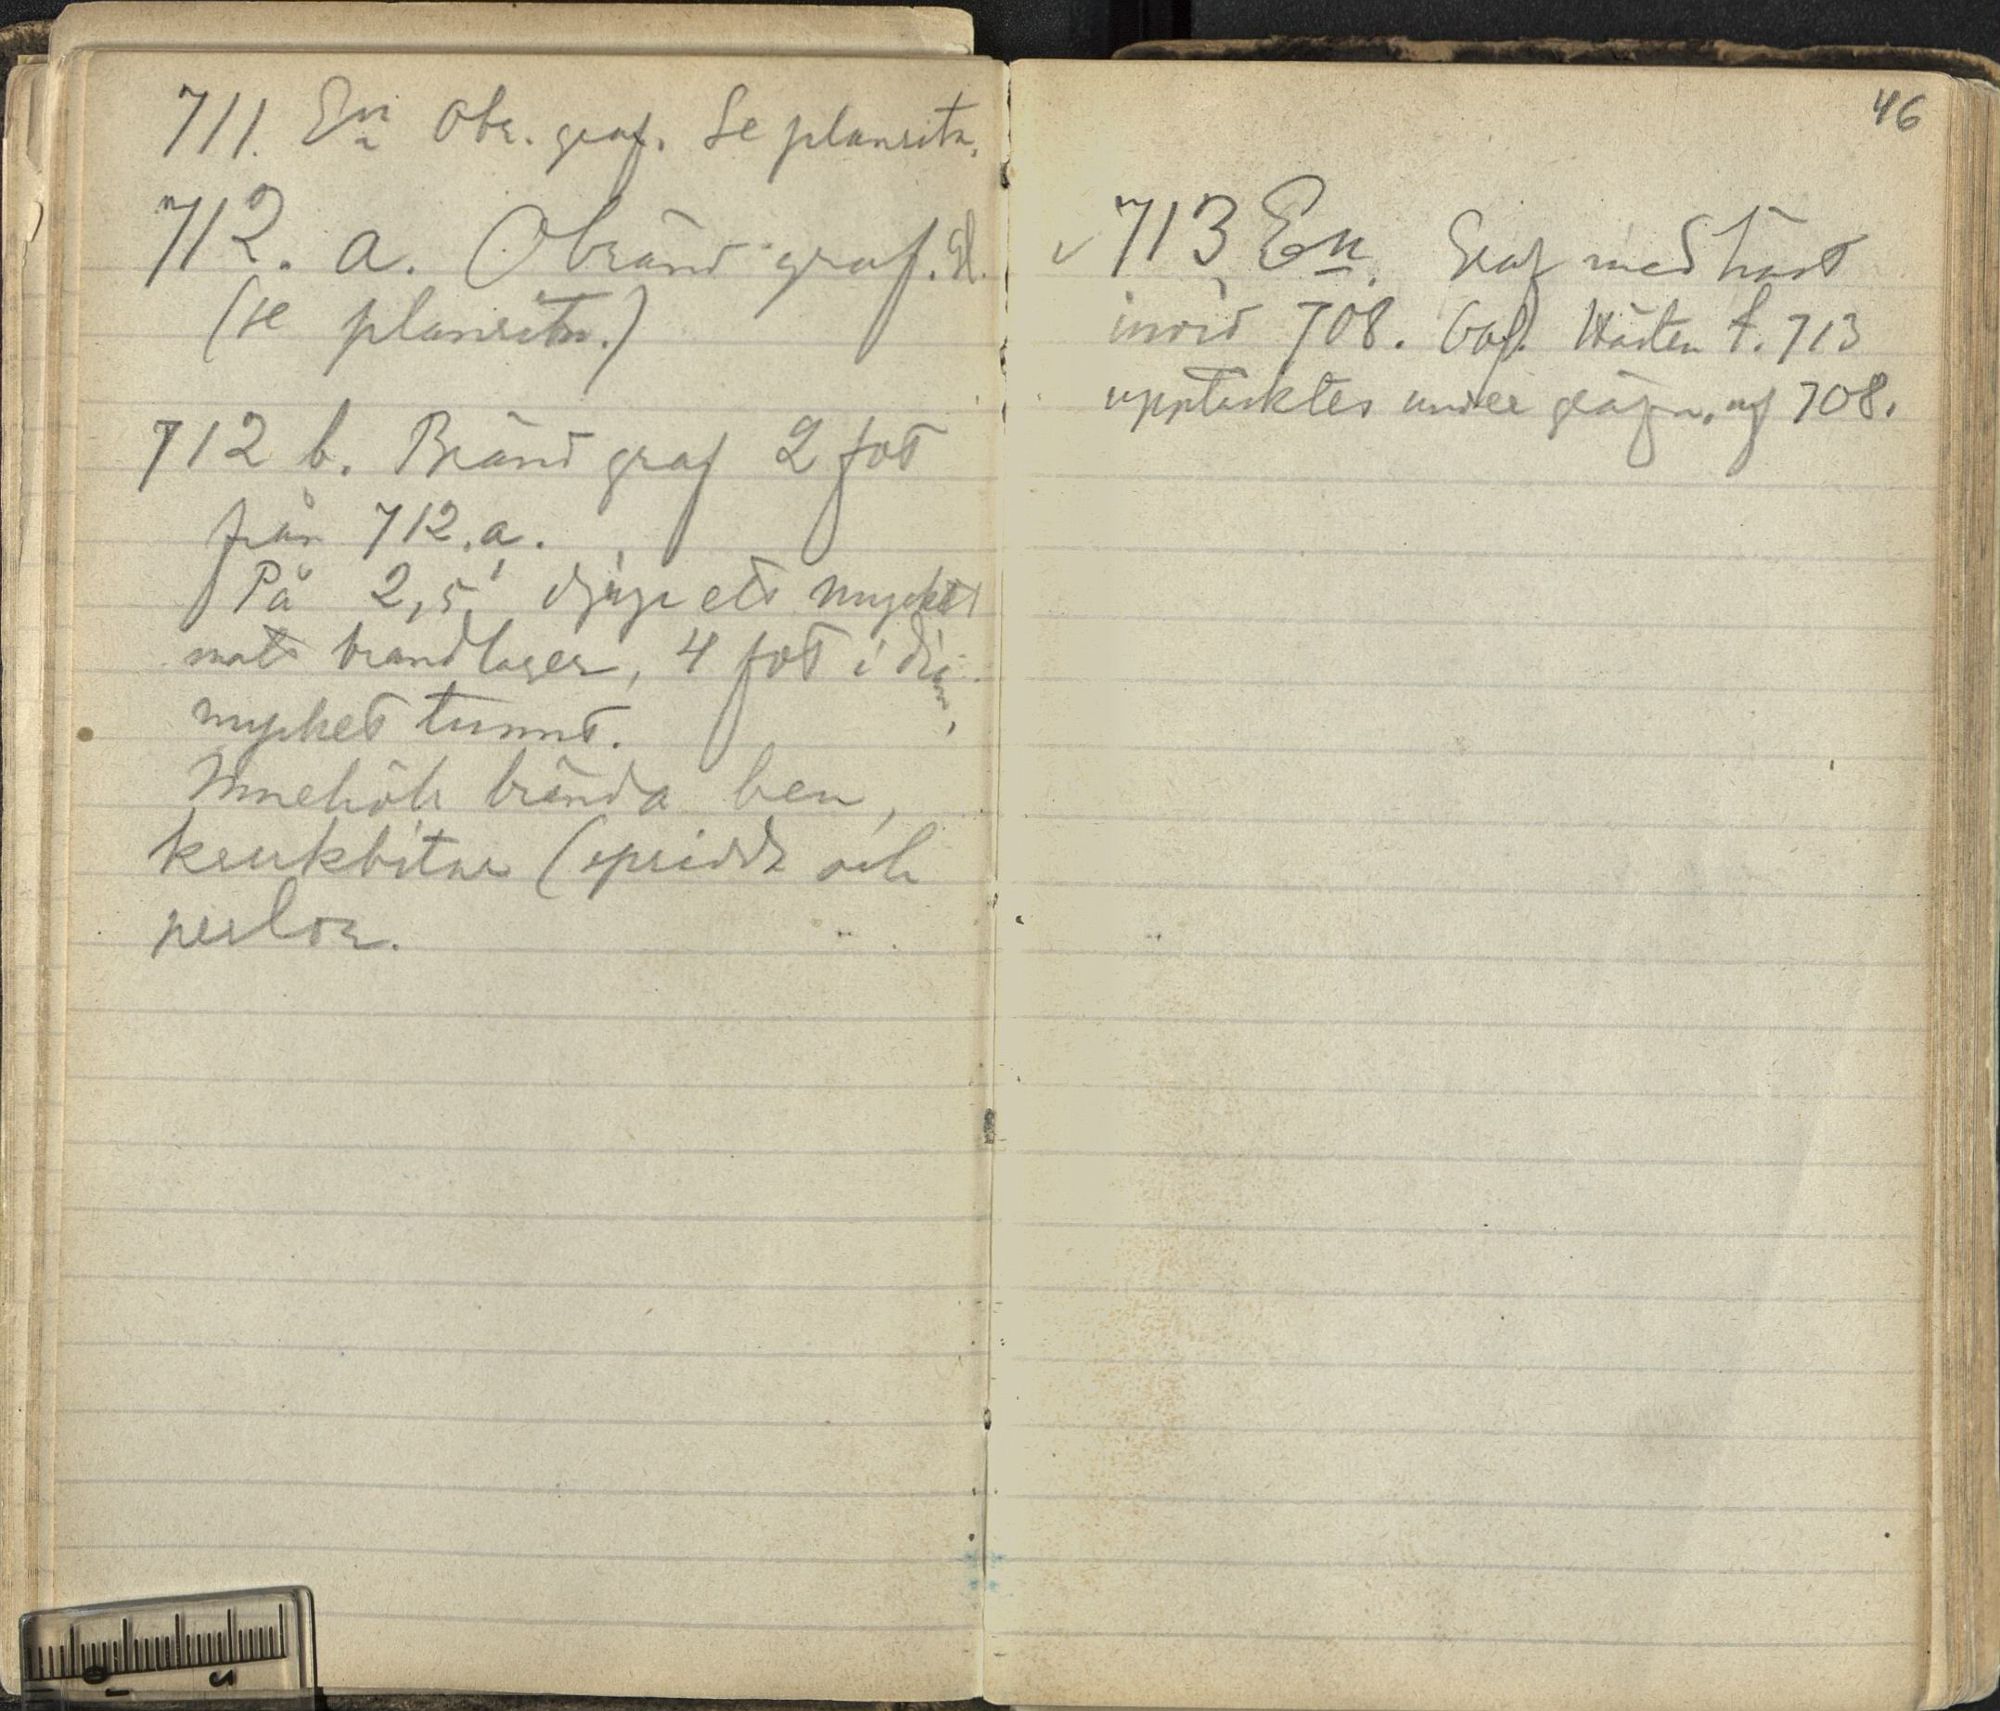 711. En Obr. graf. Se planritn.
712. a. Obränd graf. Sk.
(se planritn.)
712 b. Bränd graf 2 fot
från 712.a.
På 2,5' djup ett mycket
matt brandlager, 4 fot i diam.
mycket tunnt.
Innehöll brända ben,
krukbitar (spridda och
perlor.
46
713 En. Graf med häst
invid 708. Obs. Hästen t. 713
upptäcktes under gräfn. af 708.